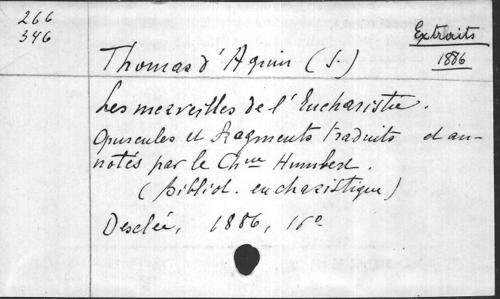 266
346
Extraits
1886
Thomas d'Aquin (S.)
Les merveilles de l'Eucharistie.
Opuscules et fragments traduits et an-
notés par le Chne Humbert.
(bibliot. eucharistique)
Desclée, 1886, 16o